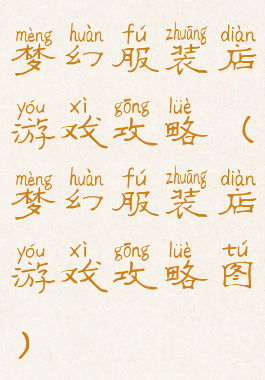 mèng huàn fú zhuāng diàn
梦幻服装店
yóu xì gōng lüè
游戏攻略（
mèng huàn fú zhuāng diàn
梦幻服装店
yóu xì gōng lüè tú
游戏攻略图
）